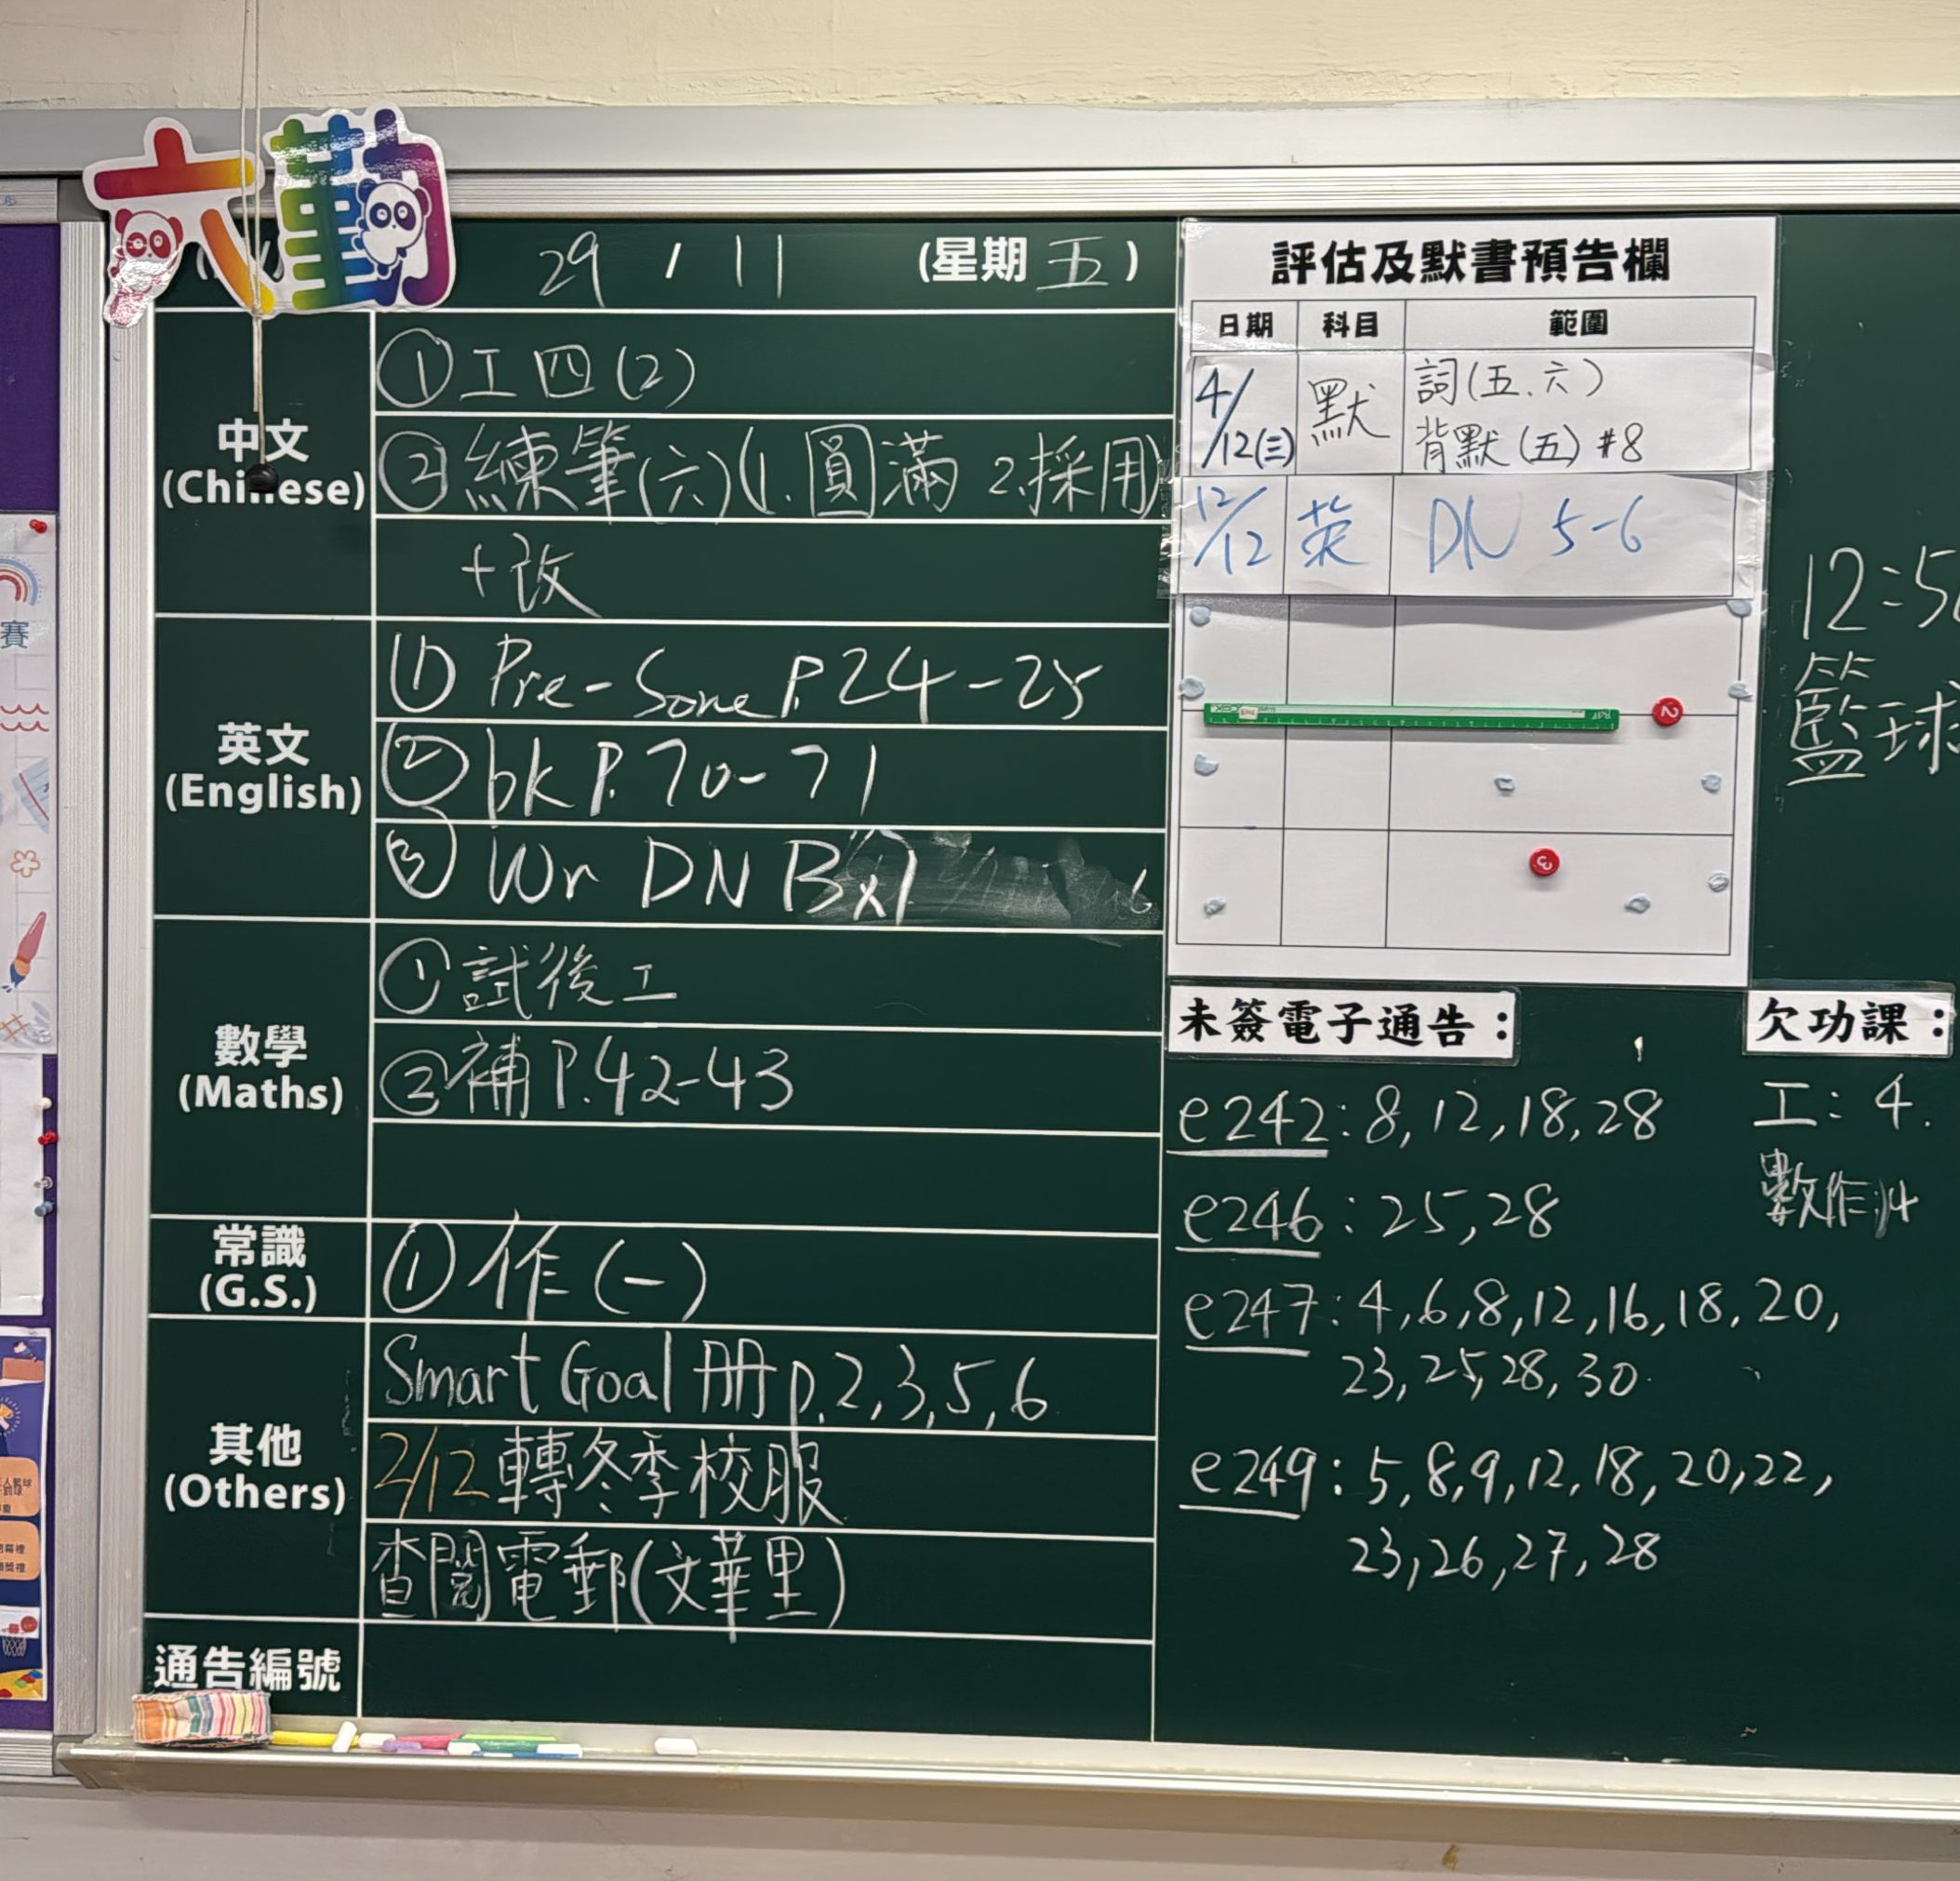 六勤
29 / 11 (星期 五)
中文
(Chinese)
①工四(2)
②練筆(六)(1.圓滿 2.採用)
+改
英文
(English)
① Pre-Some P.24-25
② bk P.70-71
③ Wr DN Bx1
數學
(Maths)
①試後工
②補P.42-43
常識
(G.S.)
①作(一)
其他
(Others)
Smart Goal 冊 p.2,3,5,6
2/12 轉冬季校服
查閱電郵(文華里)
通告編號
評估及默書預告欄
日期 科目 範圍
4/12(三) 默 詞(五、六)
背默(五)#8
12/12 英 DN 5-6
2
3
未簽電子通告：
e242: 8, 12, 18, 28
e246: 25, 28
e247: 4, 6, 8, 12, 16, 18, 20,
23, 25, 28, 30.
e249: 5, 8, 9, 12, 18, 20, 22,
23, 26, 27, 28
12:5
籃球
欠功課：
工: 4.
數作:14
賽